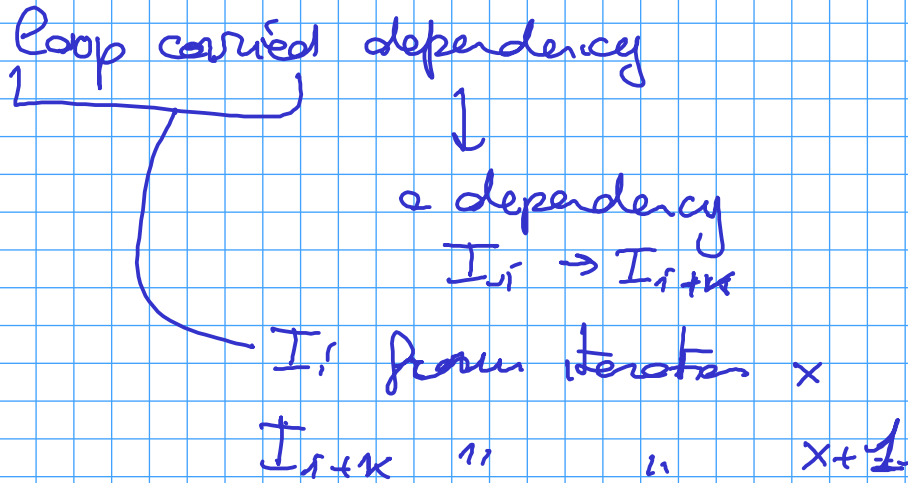 Loop carried dependency
↓
a dependency
I_i → I_i+k
I_i from iteration x
I_i+k " " x+1